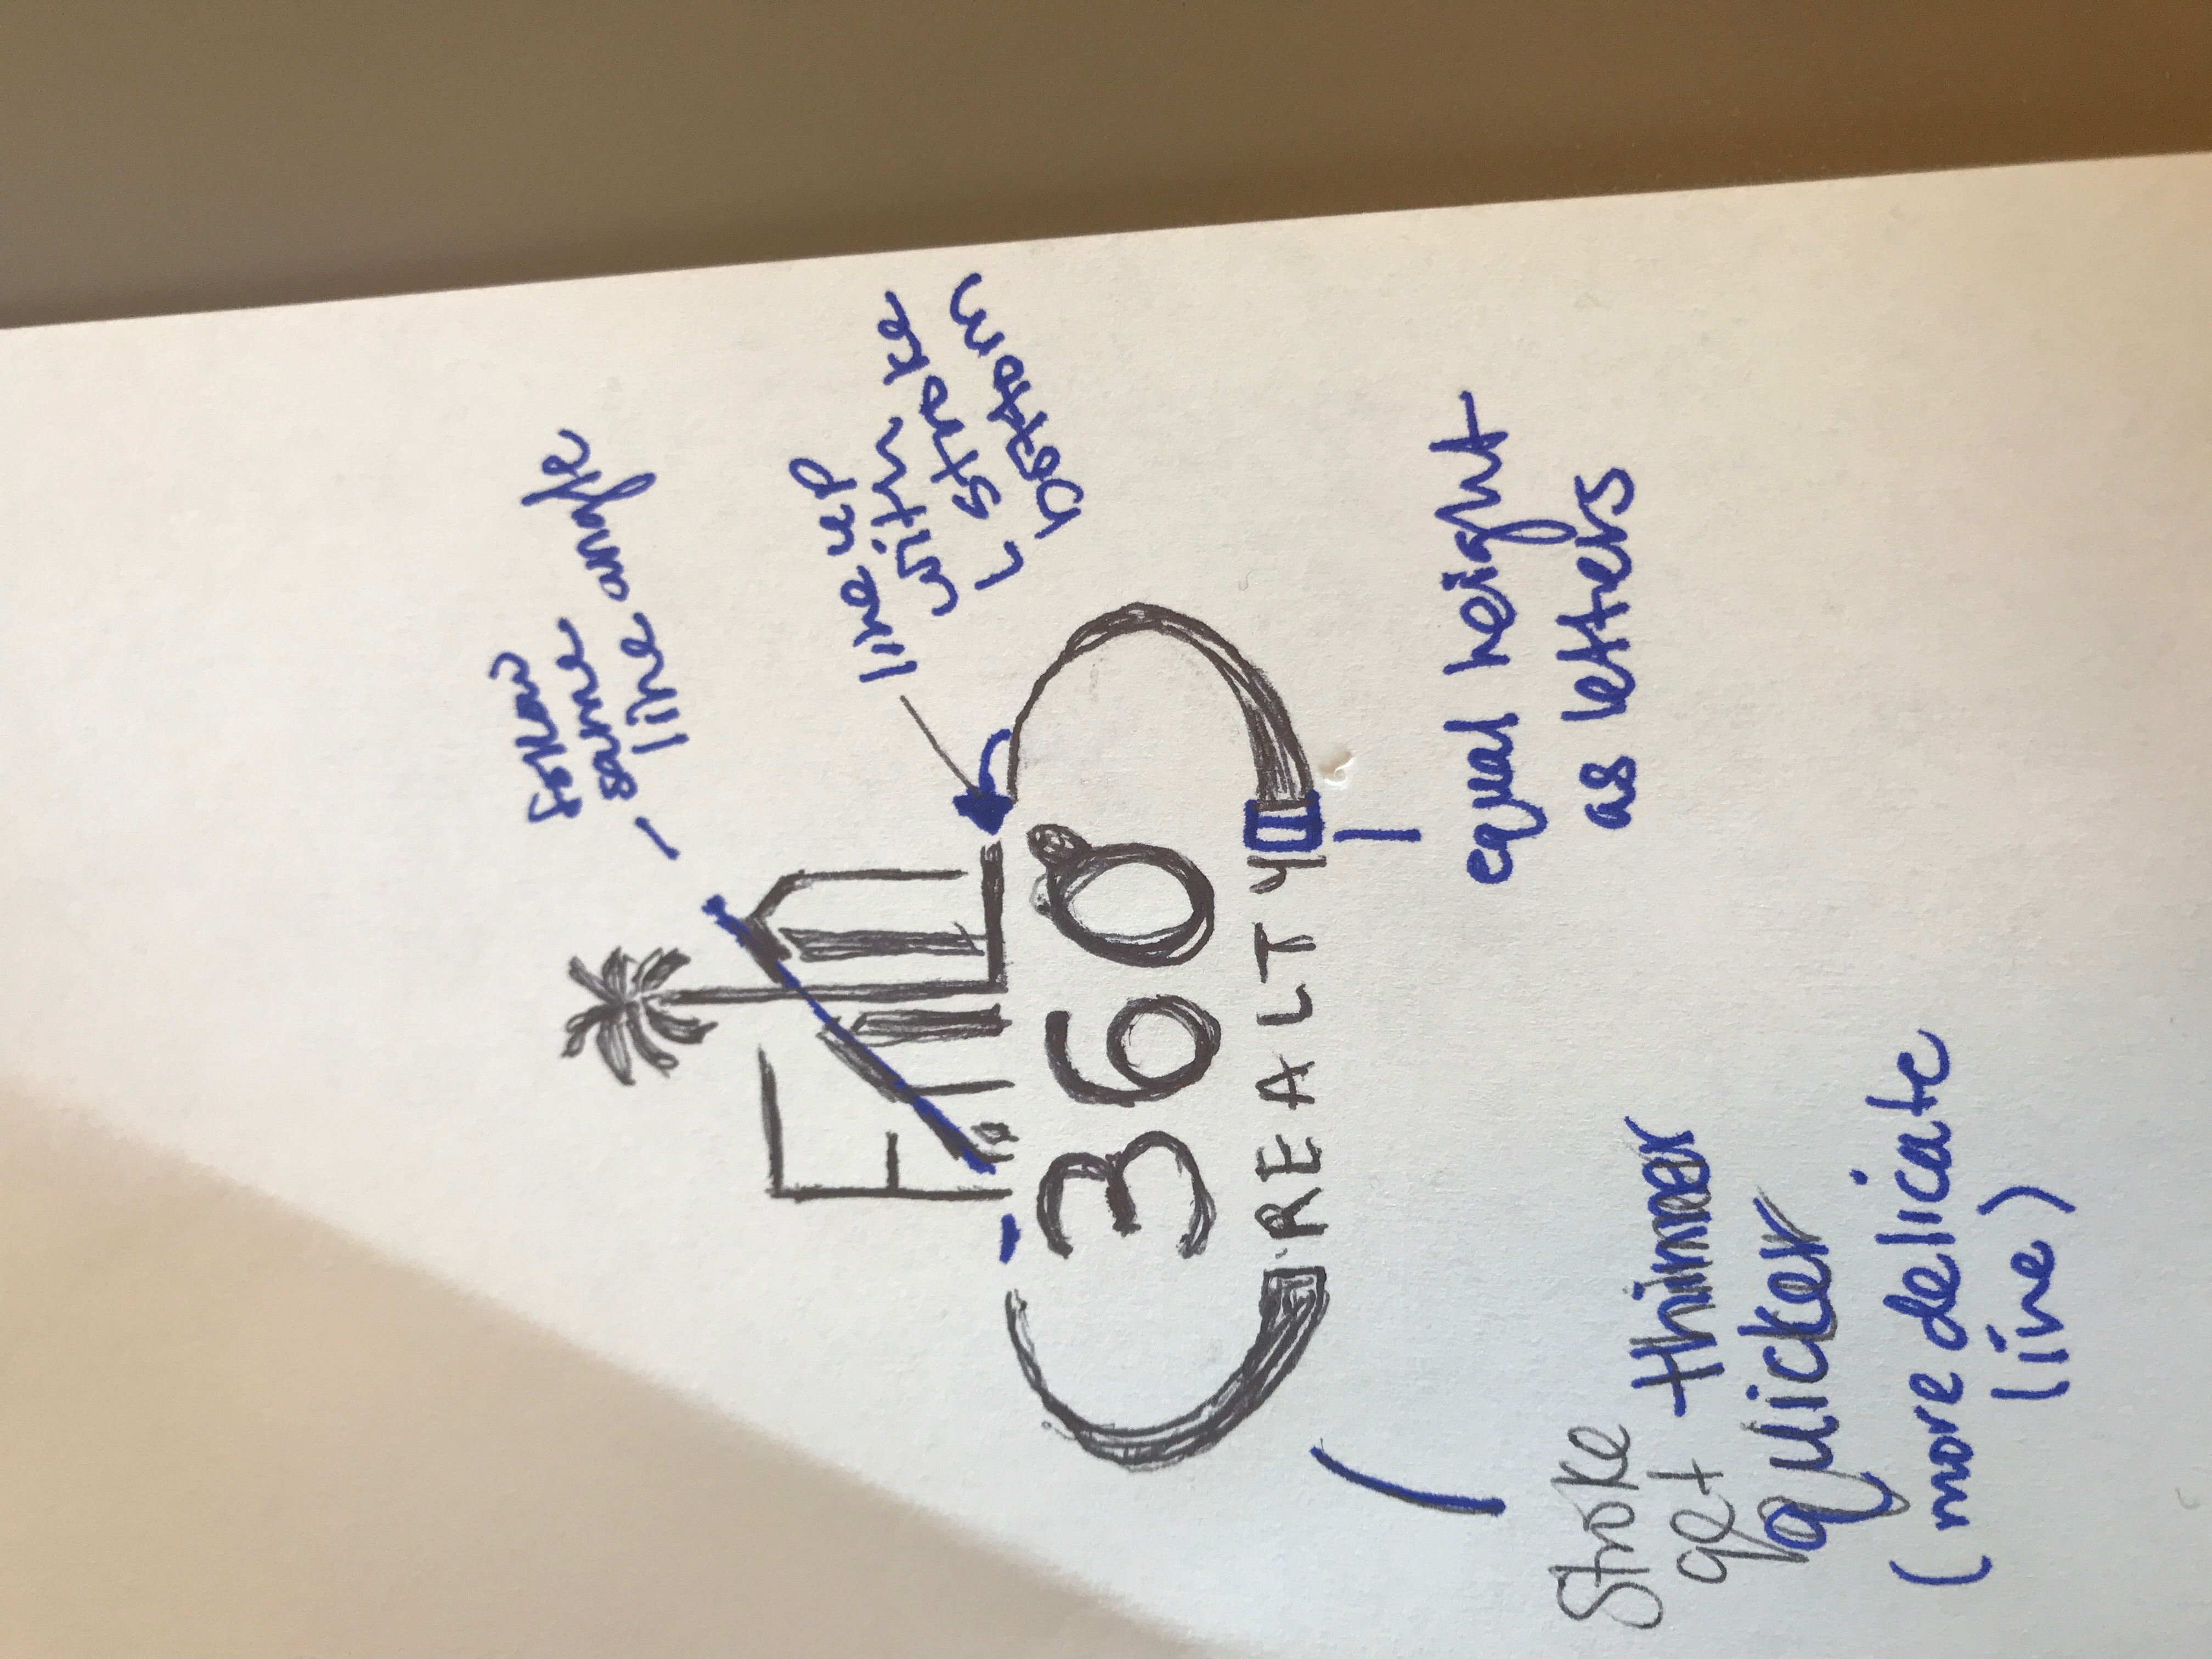 follow
same
line angle
line up
with
L stroke
bottom
FL
360
REALTY
equal height
as letters
Stroke
get thinner
quicker
(more delicate
line)